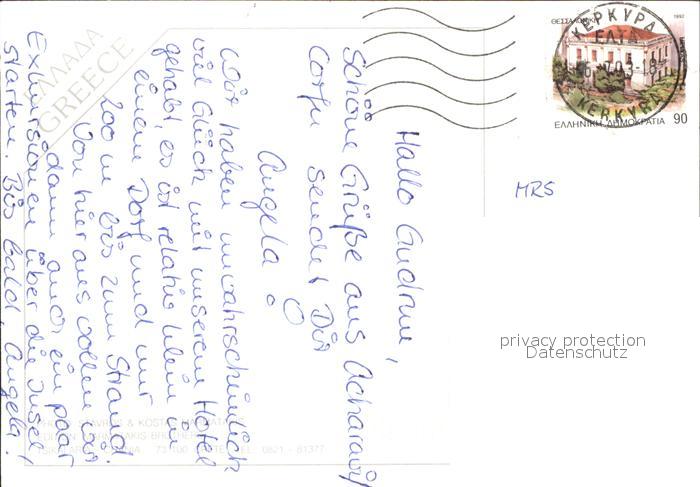 Hallo Gudrun,
Schöne Grüße aus Acharavi/
Corfu sendet Dir
Angela!
Wir haben unwahrscheinlich
viel Glück mit unserem Hotel
gehabt, es ist relativ klein in
einem Dorf und nur
200 m bis zum Strand.
Von hier aus wollen wir
dann auch ein paar
Exkursionen über die Insel
starten. Bis bald, Angela!
ΕΛΛΑΔΑ
GREECE
ΘΕΣΣΑΛΟΝΙΚΗ
1992
ΕΛΛΗΝΙΚΗ ΔΗΜΟΚΡΑΤΙΑ 90
ΚΕΡΚΥΡΑ
ΕΛΤΑ
KERKYRA
MRS
privacy protection
Datenschutz
& KOSTAS
73 100 TEL. 0821 - 81377